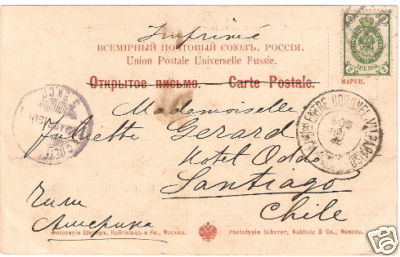 Imprimé
ВСЕМІРНЫЙ ПОЧТОВЫЙ СОЮЗЪ. РОССІЯ.
Union Postale Universelle Russie.
МАРКИ.
Открытое письмо. — Carte Postale.
Mademoiselle
Juliette Gerard
Hotel Oddo
Santiago
Chile
Чили
Америка
Фототипія Шереръ, Набгольцъ и Ко., Москва.
Phototypie Scherer, Nabholz & Co., Moscou.
ebY